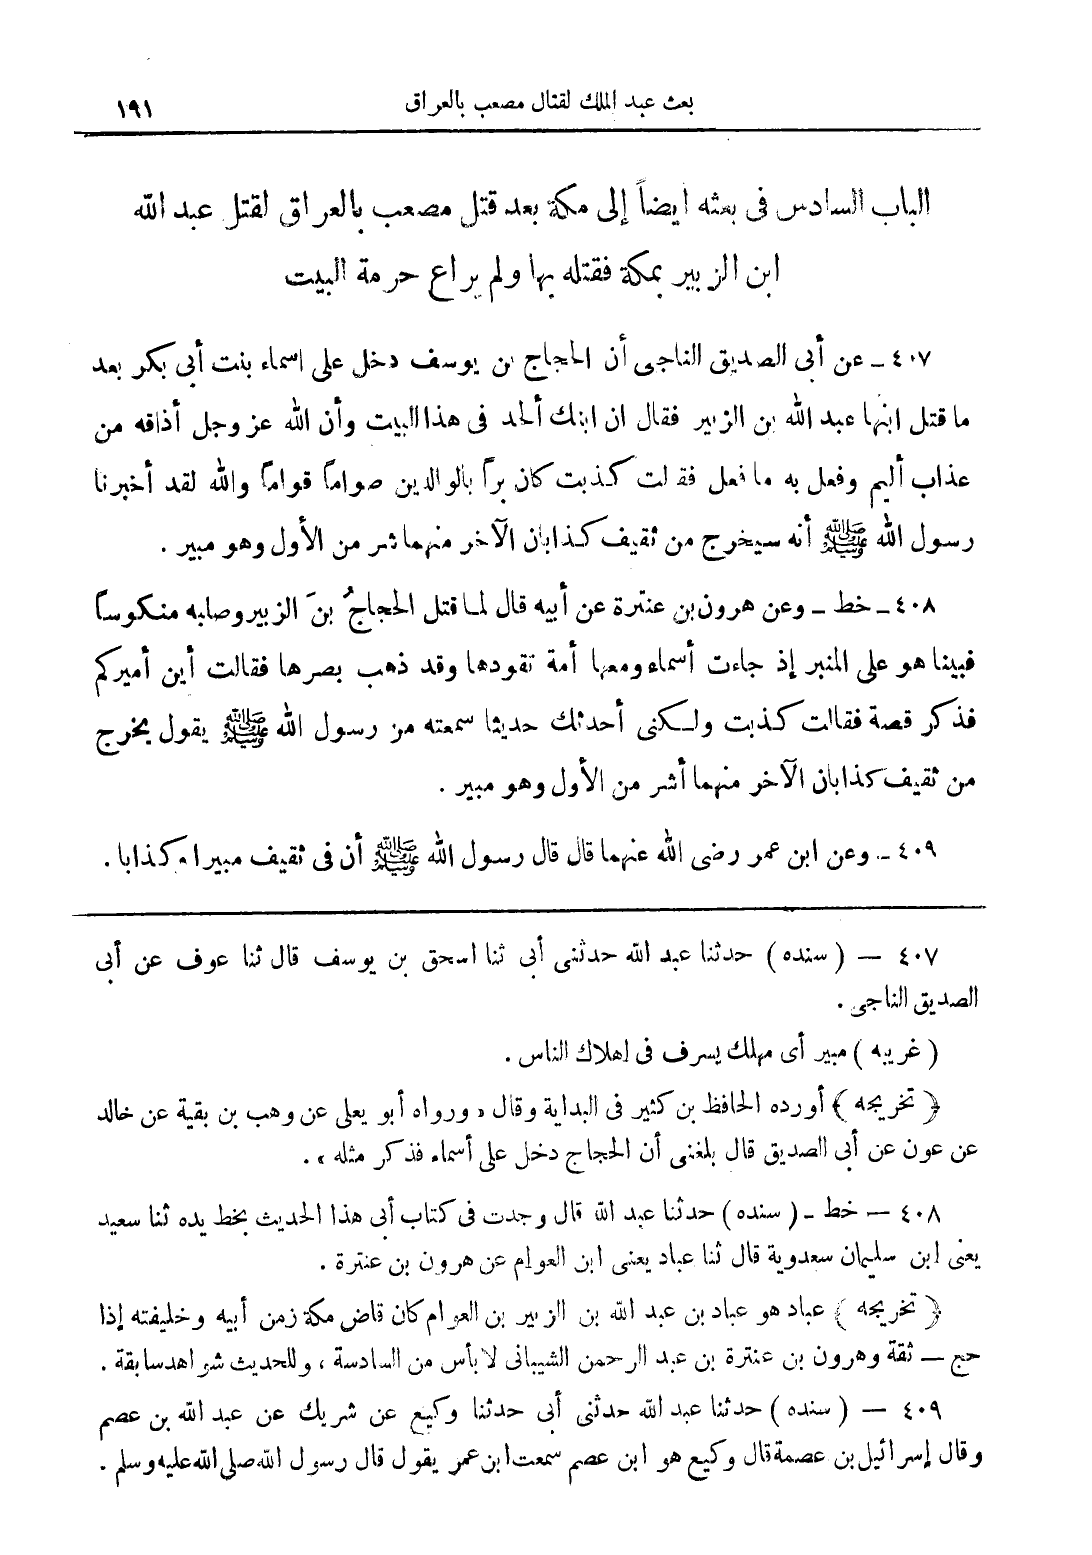 بعث عبد الملك لقتال مصعب بالعراق
١٩١
الباب السادس فى بعثه ايضاً إلى مكة بعد قتل مصعب بالعراق لقتل عبد الله
ابن الزبير بمكة فقتله بها ولم يراع حرمة البيت
٤٠٧ ـ عن أبى الصديق الناجى أن الحجاج بن يوسف دخل على اسماء بنت أبى بكر بعد
ما قتل ابنها عبد الله بن الزبير فقال ان ابنك ألحد فى هذا البيت وأن الله عز وجل أذاقه من
عذاب أليم وفعل به ما فعل فقالت كذبت كان براً بالوالدين صواماً قواماً والله لقد أخبرنا
رسول الله ﷺ أنه سيخرج من ثقيف كذابان الآخر منهما شر من الأول وهو مبير .
٤٠٨ ـ خط ـ وعن هرون بن عنترة عن أبيه قال لما قتل الحجاجُ بنَ الزبير وصلبه منكوساً
فبينا هو على المنبر إذ جاءت أسماء ومعها أمة تقودها وقد ذهب بصرها فقالت أين أميركم
فذكر قصة فقالت كذبت ولكنى أحدثك حديثا سمعته من رسول الله ﷺ يقول يخرج
من ثقيف كذابان الآخر منهما أشر من الأول وهو مبير .
٤٠٩ ـ وعن ابن عمر رضى الله عنهما قال قال رسول الله ﷺ أن فى ثقيف مبيرا وكذابا .
٤٠٧ — ( سنده ) حدثنا عبد الله حدثنى أبى ثنا اسحق بن يوسف قال ثنا عوف عن أبى
الصديق الناجى .
( غريبه ) مبير أى مهلك يسرف فى إهلاك الناس .
﴿ تخريجه ﴾ أورده الحافظ بن كثير فى البداية وقال « ورواه أبو يعلى عن وهب بن بقية عن خالد
عن عون عن أبى الصديق قال بلغنى أن الحجاج دخل على أسماء فذكر مثله » .
٤٠٨ — خط ـ ( سنده ) حدثنا عبد الله قال وجدت فى كتاب أبى هذا الحديث بخط يده ثنا سعيد
يعنى ابن سليمان سعدوية قال ثنا عباد يعنى ابن العوام عن هرون بن عنترة .
﴿ تخريجه ﴾ عباد هو عباد بن عبد الله بن الزبير بن العوام كان قاض مكة زمن أبيه وخليفته إذا
حج — ثقة وهرون بن عنترة بن عبد الرحمن الشيبانى لا بأس من السادسة ، وللحديث شواهد سابقة .
٤٠٩ — ( سنده ) حدثنا عبد الله حدثنى أبى حدثنا وكيع عن شريك عن عبد الله بن عصم
وقال إسرائيل بن عصمة قال وكيع هو ابن عصم سمعت ابن عمر يقول قال رسول الله صلى الله عليه وسلم .